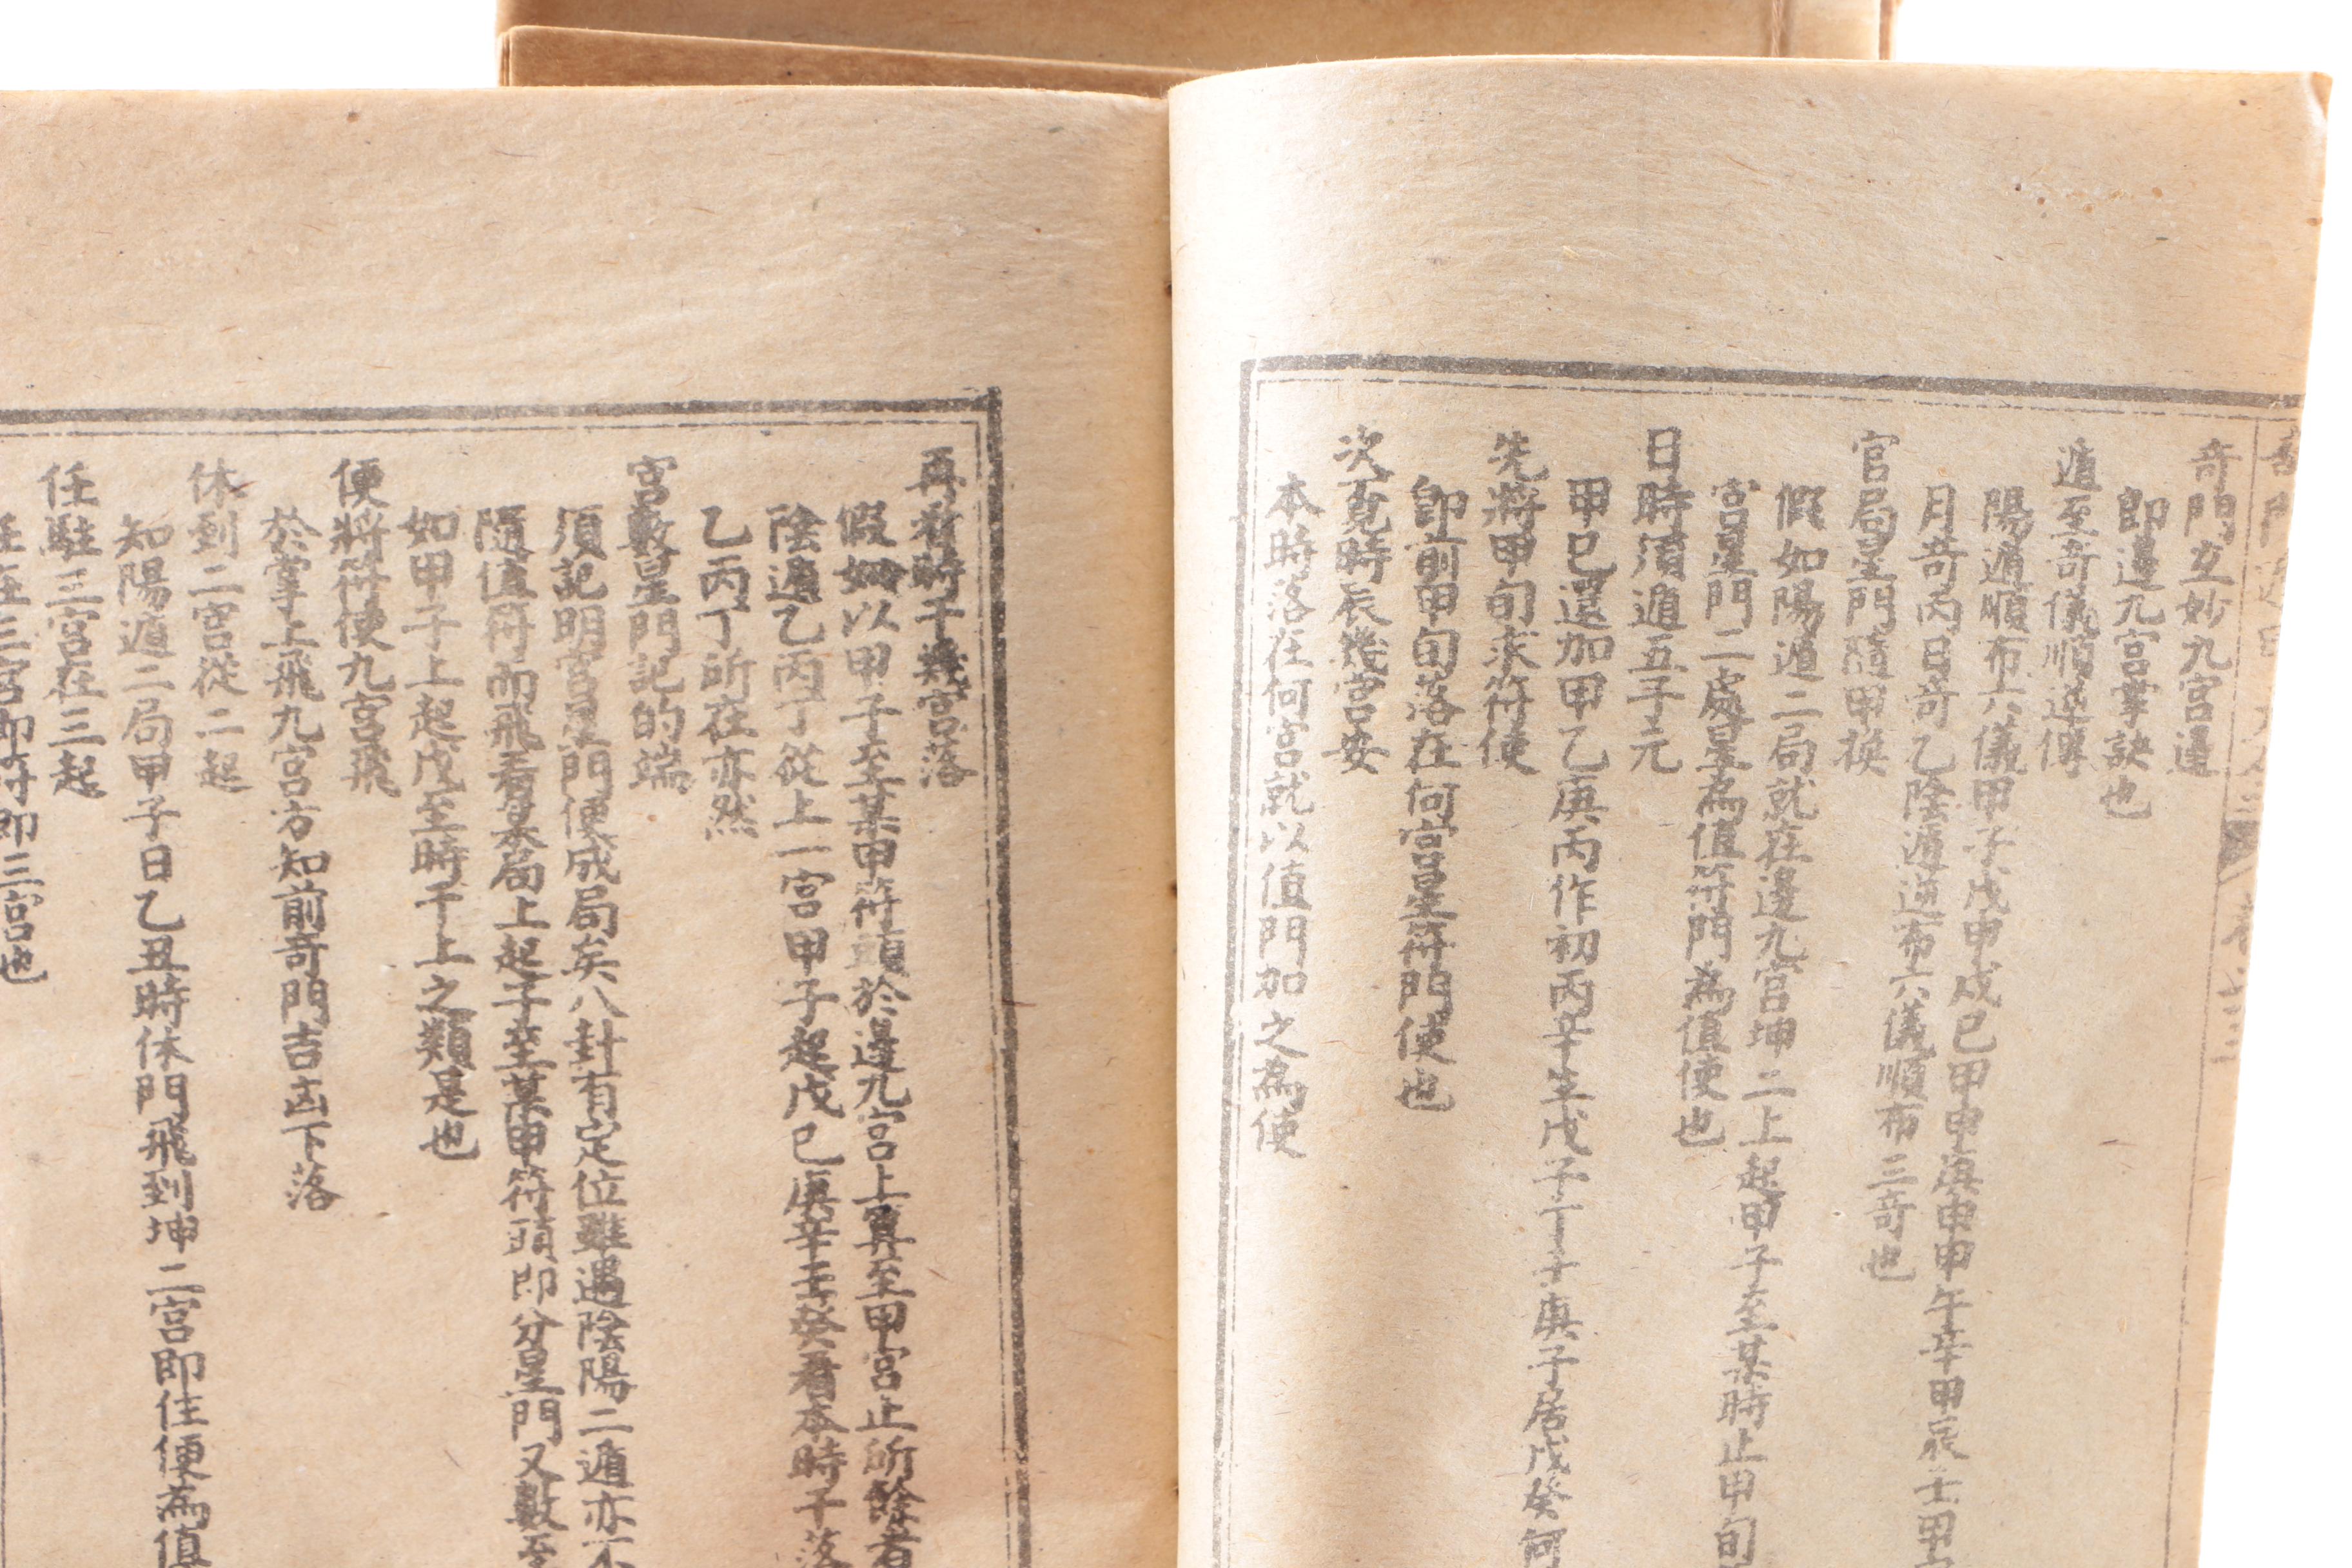 奇門互妙九宮邊
即邊九宮掌訣也
遁至奇儀順逆傳
陽遁順布六儀甲子戊甲戌己甲申庚甲午辛甲辰壬甲
月奇丙日奇乙陰遁逆布六儀順布三奇也
官局星門隨甲換
假如陽遁二局就在邊九宮坤二上起甲子至某時止甲旬
宮星門二處星為值符門為值使也
日時須遁五子元
甲己還加甲乙庚丙作初丙辛生戊子丁壬庚子居戊癸何
先將甲旬求符使
即前甲旬落在何宮星符門使也
次覓時辰幾宮安
本時落在何宮就以值門加之為使
再看時干幾宮落
假如以甲子至某甲符頭於邊九宮上算至甲宮止所餘者
陰遁乙丙丁從上一宮甲子起戊己庚辛壬癸看本時干落
乙丙丁所在亦然
宮數星門記的端
須記明宮星門便成局矣八卦有定位雖遇陰陽二遁亦不
隨值符而飛看某局上起子至某甲符頭即分星門又數至
如甲子上起戊至時干上之類是也
便將符使九宮飛
於掌上飛九宮方知前奇門吉凶下落
休到二宮從二起
知陽遁二局甲子日乙丑時休門飛到坤二宮即住便為值
任駐三宮在三起
任在三宮即符即三宮也